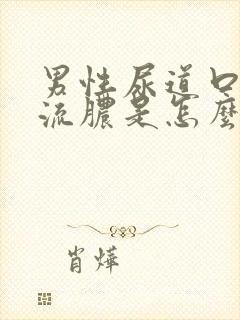 男性尿道口
流膿是怎麼
肖燁